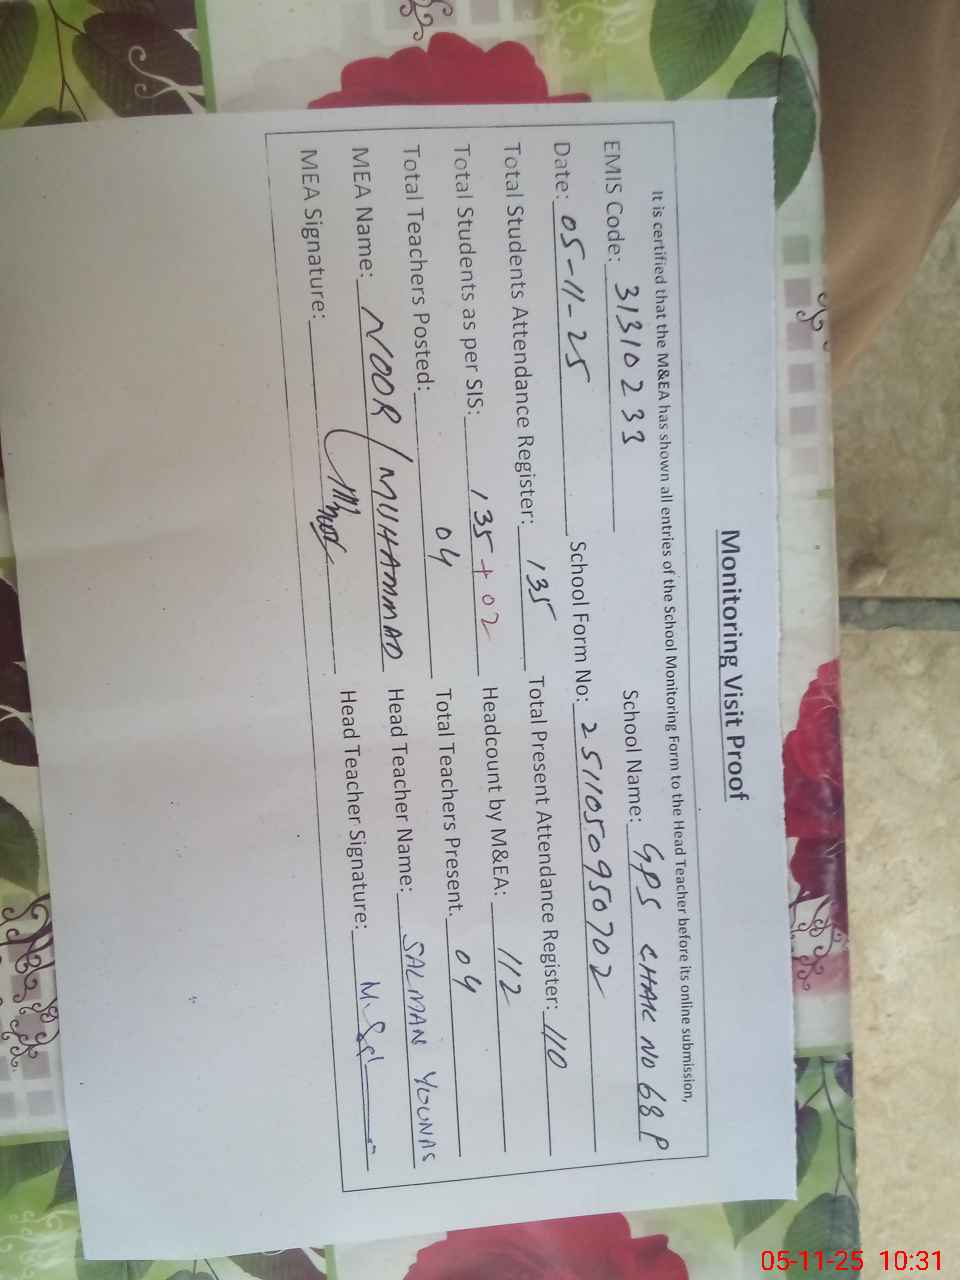 Monitoring Visit Proof
It is certified that the M&EA has shown all entries of the School Monitoring Form to the Head Teacher before its online submission,
EMIS Code: 31310233 School Name: GPS CHAK NO 68 P
Date: 05-11-25 School Form No: 2511050950702
Total Students Attendance Register: 135 Total Present Attendance Register: 110
Total Students as per SIS: 135 + 02 Headcount by M&EA: 112
Total Teachers Posted: 04 Total Teachers Present. 04
MEA Name: NOOR MUHAMMAD Head Teacher Name: SALMAN YOUNAS
MEA Signature: Head Teacher Signature:
05-11-25 10:31